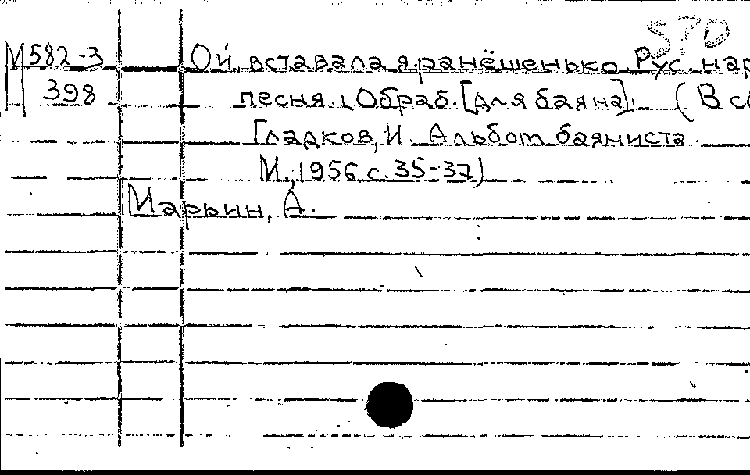 570
М582-3 Ой, вставала я ранёшенько. Рус. нар
398 песня. Обраб. [для баяна]. (В сб
Гладков, И. Альбом баяниста.
М., 1956 с. 35-37)
Марьин, А.